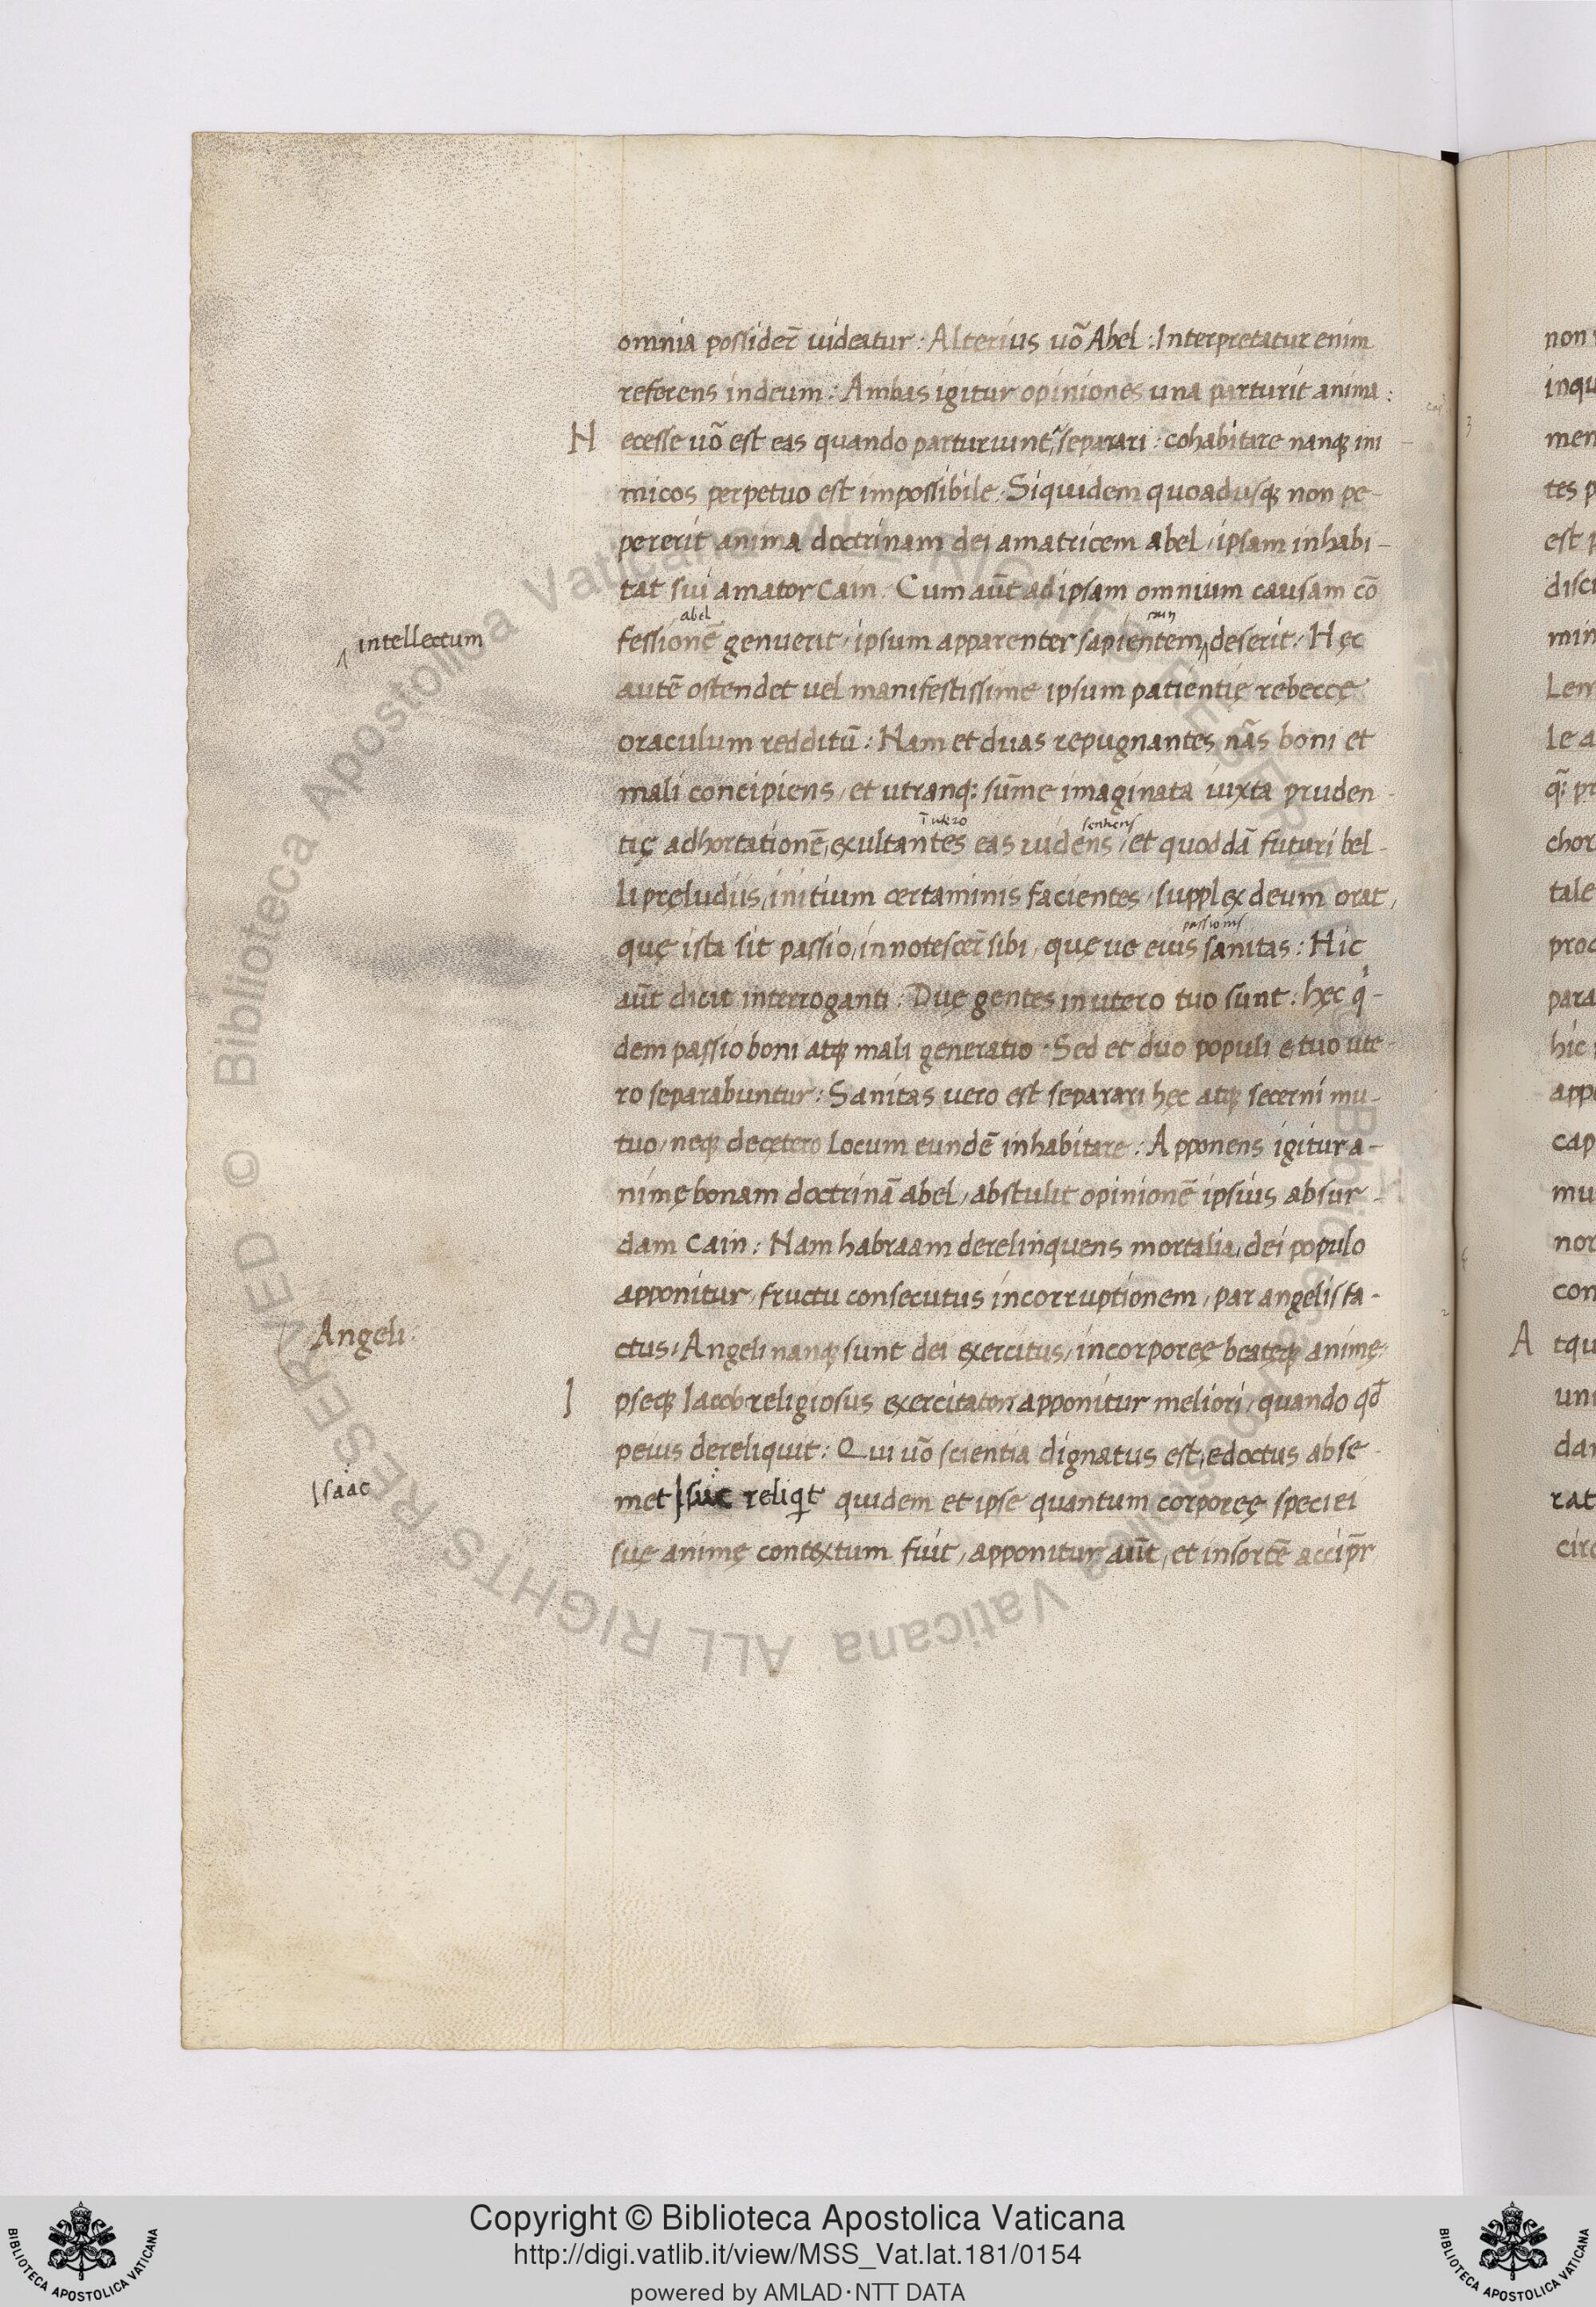 omnia possider̄ uideatur : Alterius uō Abel : Interpretatur enim
referens in deum : Ambas igitur opiniones una parturit anima :
N ecesse uō est eas quando parturiunt˜, separari : cohabitare nanq; ini
micos perpetuo est impossibile. Siquidem quoadusq; non pe-
pererit anima doctrinam dei amatricem abel, ipsam inhabi-
tat sui amator Cain. Cum aūt ad ipsam omnium causam cō
abel cain
intellectum
fessionē genuerit, ipsum apparenter sapientem deserit. Hęc
autē ostendet uel manifestissime ipsum patientię rebeccę
oraculum redditū : Nam et duas repugnantes nãs boni et
mali concipiens, et utranq; sūme imaginata iuxta pruden-
ī utero sentiens
tię adhortationē, exultantes eas uidens, et quoddā futuri bel-
li pręludiis, initium certaminis facientes, supplex deum orat,
passionis
quę ista sit passio, innotescer̄ sibi, quę ue eius sanitas : Hic
aūt dicit interroganti : Duę gentes in utero tuo sunt : hęc q-
dem passio boni atq; mali generatio. Sed et duo populi e tuo ute-
ro separabuntur : Sanitas uero est separari hęc atq; secerni mu-
tuo, neq; decętero Locum eundē inhabitare : Apponens igitur a-
nimę bonam doctrinā abel, abstulit opinionē ipsius absur-
dam Cain : Nam habraam derelinquens mortalia, dei populo
apponitur, fructu consecutus incorruptionem, par angelis fa-
Angeli
ctus, Angeli nanq; sunt dei exercitus, incorporeę beatęq; animę
I pseq; Iacob religiosus exercitator, apponitur meliori, quando qd̄
peius dereliquit : Qui uō scientia dignatus est, edoctus ab se-
Isaac
met reliqt quidem et ipse quantum corporeę speciei
suę animę contextum fuit, apponitur aūt, et in sortē accip̄r
Copyright © Biblioteca Apostolica Vaticana
http://digi.vatlib.it/view/MSS_Vat.lat.181/0154
powered by AMLAD·NTT DATA